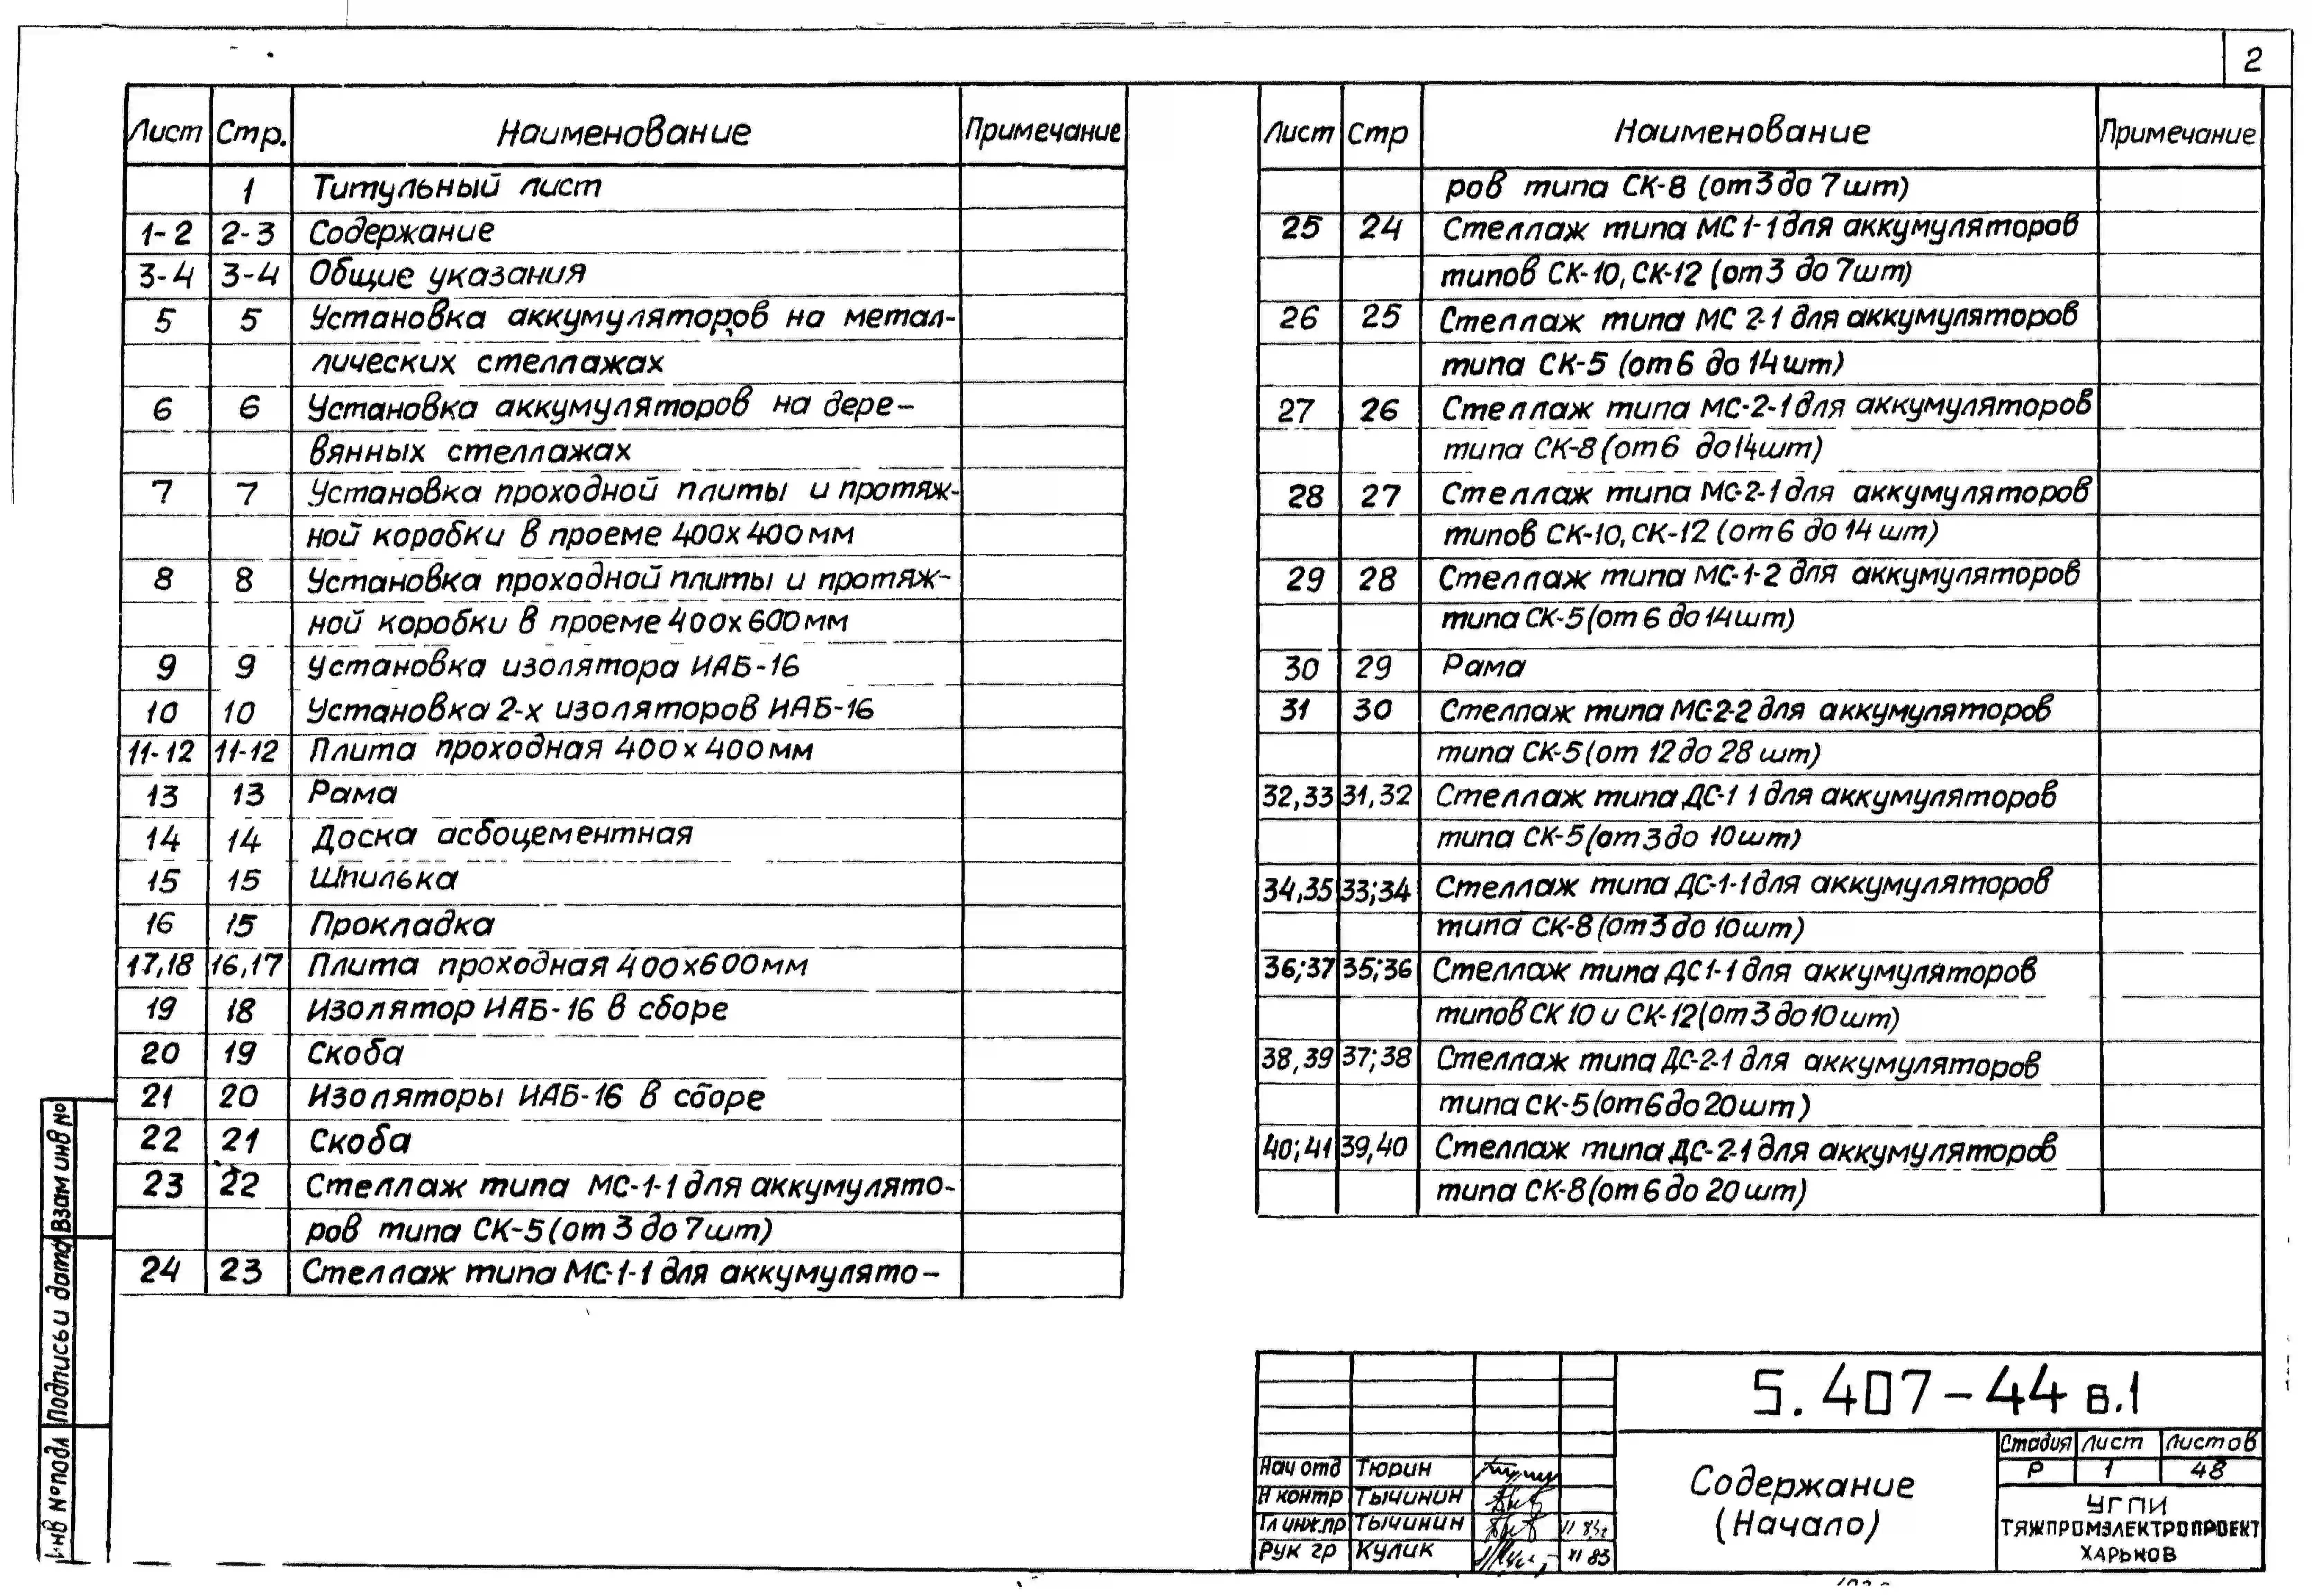 2
Лист Стр. Наименование Примечание
1 Титульный лист
1-2 2-3 Содержание
3-4 3-4 Общие указания
5 5 Установка аккумуляторов на метал-
лических стеллажах
6 6 Установка аккумуляторов на дере-
вянных стеллажах
7 7 Установка проходной плиты и протяж-
ной коробки в проеме 400х400мм
8 8 Установка проходной плиты и протяж-
ной коробки в проеме 400х600мм
9 9 Установка изолятора ИАБ-16
10 10 Установка 2-х изоляторов ИАБ-16
11-12 11-12 Плита проходная 400х400мм
13 13 Рама
14 14 Доска асбоцементная
15 15 Шпилька
16 15 Прокладка
17,18 16,17 Плита проходная 400х600мм
19 18 Изолятор ИАБ-16 в сборе
20 19 Скоба
21 20 Изоляторы ИАБ-16 в сборе
22 21 Скоба
23 22 Стеллаж типа МС-1-1 для аккумулято-
ров типа СК-5 (от 3 до 7шт)
24 23 Стеллаж типа МС-1-1 для аккумулято-
Лист Стр Наименование Примечание
ров типа СК-8 (от 3 до 7шт)
25 24 Стеллаж типа МС1-1 для аккумуляторов
типов СК-10, СК-12 (от 3 до 7шт)
26 25 Стеллаж типа МС 2-1 для аккумуляторов
типа СК-5 (от 6 до 14шт)
27 26 Стеллаж типа МС-2-1 для аккумуляторов
типа СК-8 (от 6 до 14шт)
28 27 Стеллаж типа МС-2-1 для аккумуляторов
типов СК-10, СК-12 (от 6 до 14 шт)
29 28 Стеллаж типа МС-1-2 для аккумуляторов
типа СК-5 (от 6 до 14шт)
30 29 Рама
31 30 Стеллаж типа МС-2-2 для аккумуляторов
типа СК-5 (от 12 до 28 шт)
32,33 31,32 Стеллаж типа ДС-1 1 для аккумуляторов
типа СК-5 (от 3 до 10шт)
34,35 33;34 Стеллаж типа ДС-1-1 для аккумуляторов
типа СК-8 (от 3 до 10шт)
36;37 35;36 Стеллаж типа ДС1-1 для аккумуляторов
типов СК 10 и СК-12 (от 3 до 10 шт)
38,39 37;38 Стеллаж типа ДС-2-1 для аккумуляторов
типа СК-5 (от 6 до 20шт)
40;41 39,40 Стеллаж типа ДС-2-1 для аккумуляторов
типа СК-8 (от 6 до 20 шт)
Инв №подл Подпись и дата Взам инв №
5.407-44 в.1
Содержание
(Начало)
Стадия Лист Листов
Р 1 48
УГПИ
ТЯЖПРОМЭЛЕКТРОПРОЕКТ
ХАРЬКОВ
Нач отд Тюрин
Н контр Тычинин
Гл инж.пр Тычинин
Рук гр Кулик XI 83